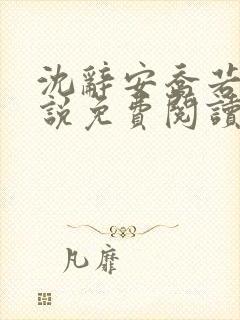 沈辭安喬若
說免費閱讀
凡靡